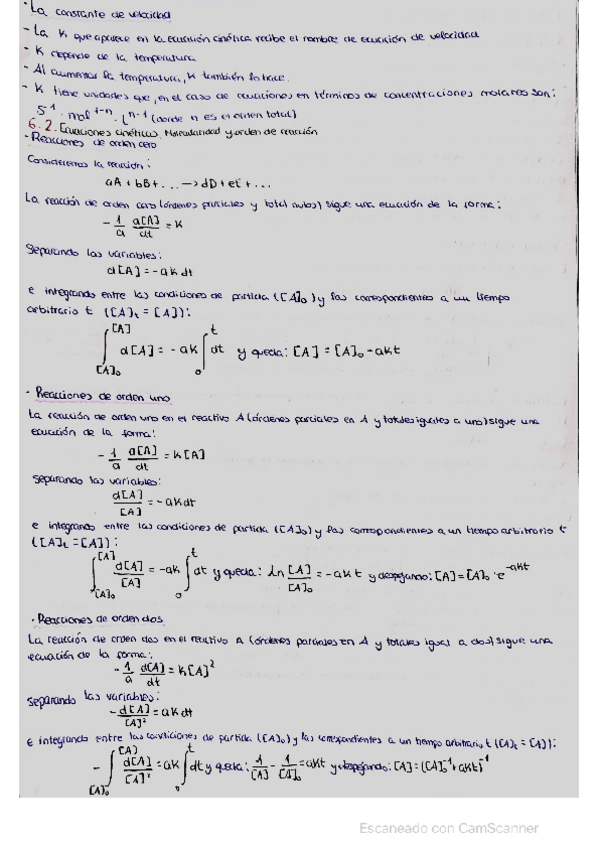 · La constante de velocidad
- La K que aparece en la ecuación cinética recibe el nombre de ecuación de velocidad
- K depende de la temperatura
- Al aumentar la temperatura, K también lo hace.
- K tiene unidades que, en el caso de ecuaciones en términos de concentraciones molares son:
s⁻¹ · mol¹⁻ⁿ · Lⁿ⁻¹ (donde n es el orden total)
6.2. Ecuaciones cinéticas. Molecularidad y orden de reacción
· Reacciones de orden cero
Consideremos la reacción:
aA + bB + ... → dD + eE + ...
La reacción de orden cero (órdenes parciales y total nulos) sigue una ecuación de la forma:
- 1/a d[A]/dt = K
Separando las variables:
d[A] = - aK dt
e integrando entre las condiciones de partida ([A]₀) y las correspondientes a un tiempo
arbitrario t ([A]t = [A]):
∫[A]₀^[A] d[A] = - aK ∫0^t dt y queda: [A] = [A]₀ - aKt
· Reacciones de orden uno
La reacción de orden uno en el reactivo A (órdenes parciales en A y totales iguales a uno) sigue una
ecuación de la forma:
- 1/a d[A]/dt = K[A]
separando las variables:
d[A]/[A] = - aKdt
e integrando entre las condiciones de partida ([A]₀) y las correspondientes a un tiempo arbitrario t
([A]t = [A]):
∫[A]₀^[A] d[A]/[A] = - aK ∫0^t dt y queda: Ln [A]/[A]₀ = - aKt y despejando: [A] = [A]₀ · e^-aKt
· Reacciones de orden dos
La reacción de orden dos en el reactivo A (órdenes parciales en A y totales igual a dos) sigue una
ecuación de la forma:
- 1/a d[A]/dt = K[A]²
separando las variables:
- d[A]/[A]² = aK dt
e integrando entre las condiciones de partida ([A]₀) y las correspondientes a un tiempo arbitrario t ([A]t = [A]):
- ∫[A]₀^[A] d[A]/[A]² = aK ∫0^t dt y queda: 1/[A] - 1/[A]₀ = aKt y despejando: [A] = ([A]₀⁻¹ + aKt)⁻¹
Escaneado con CamScanner